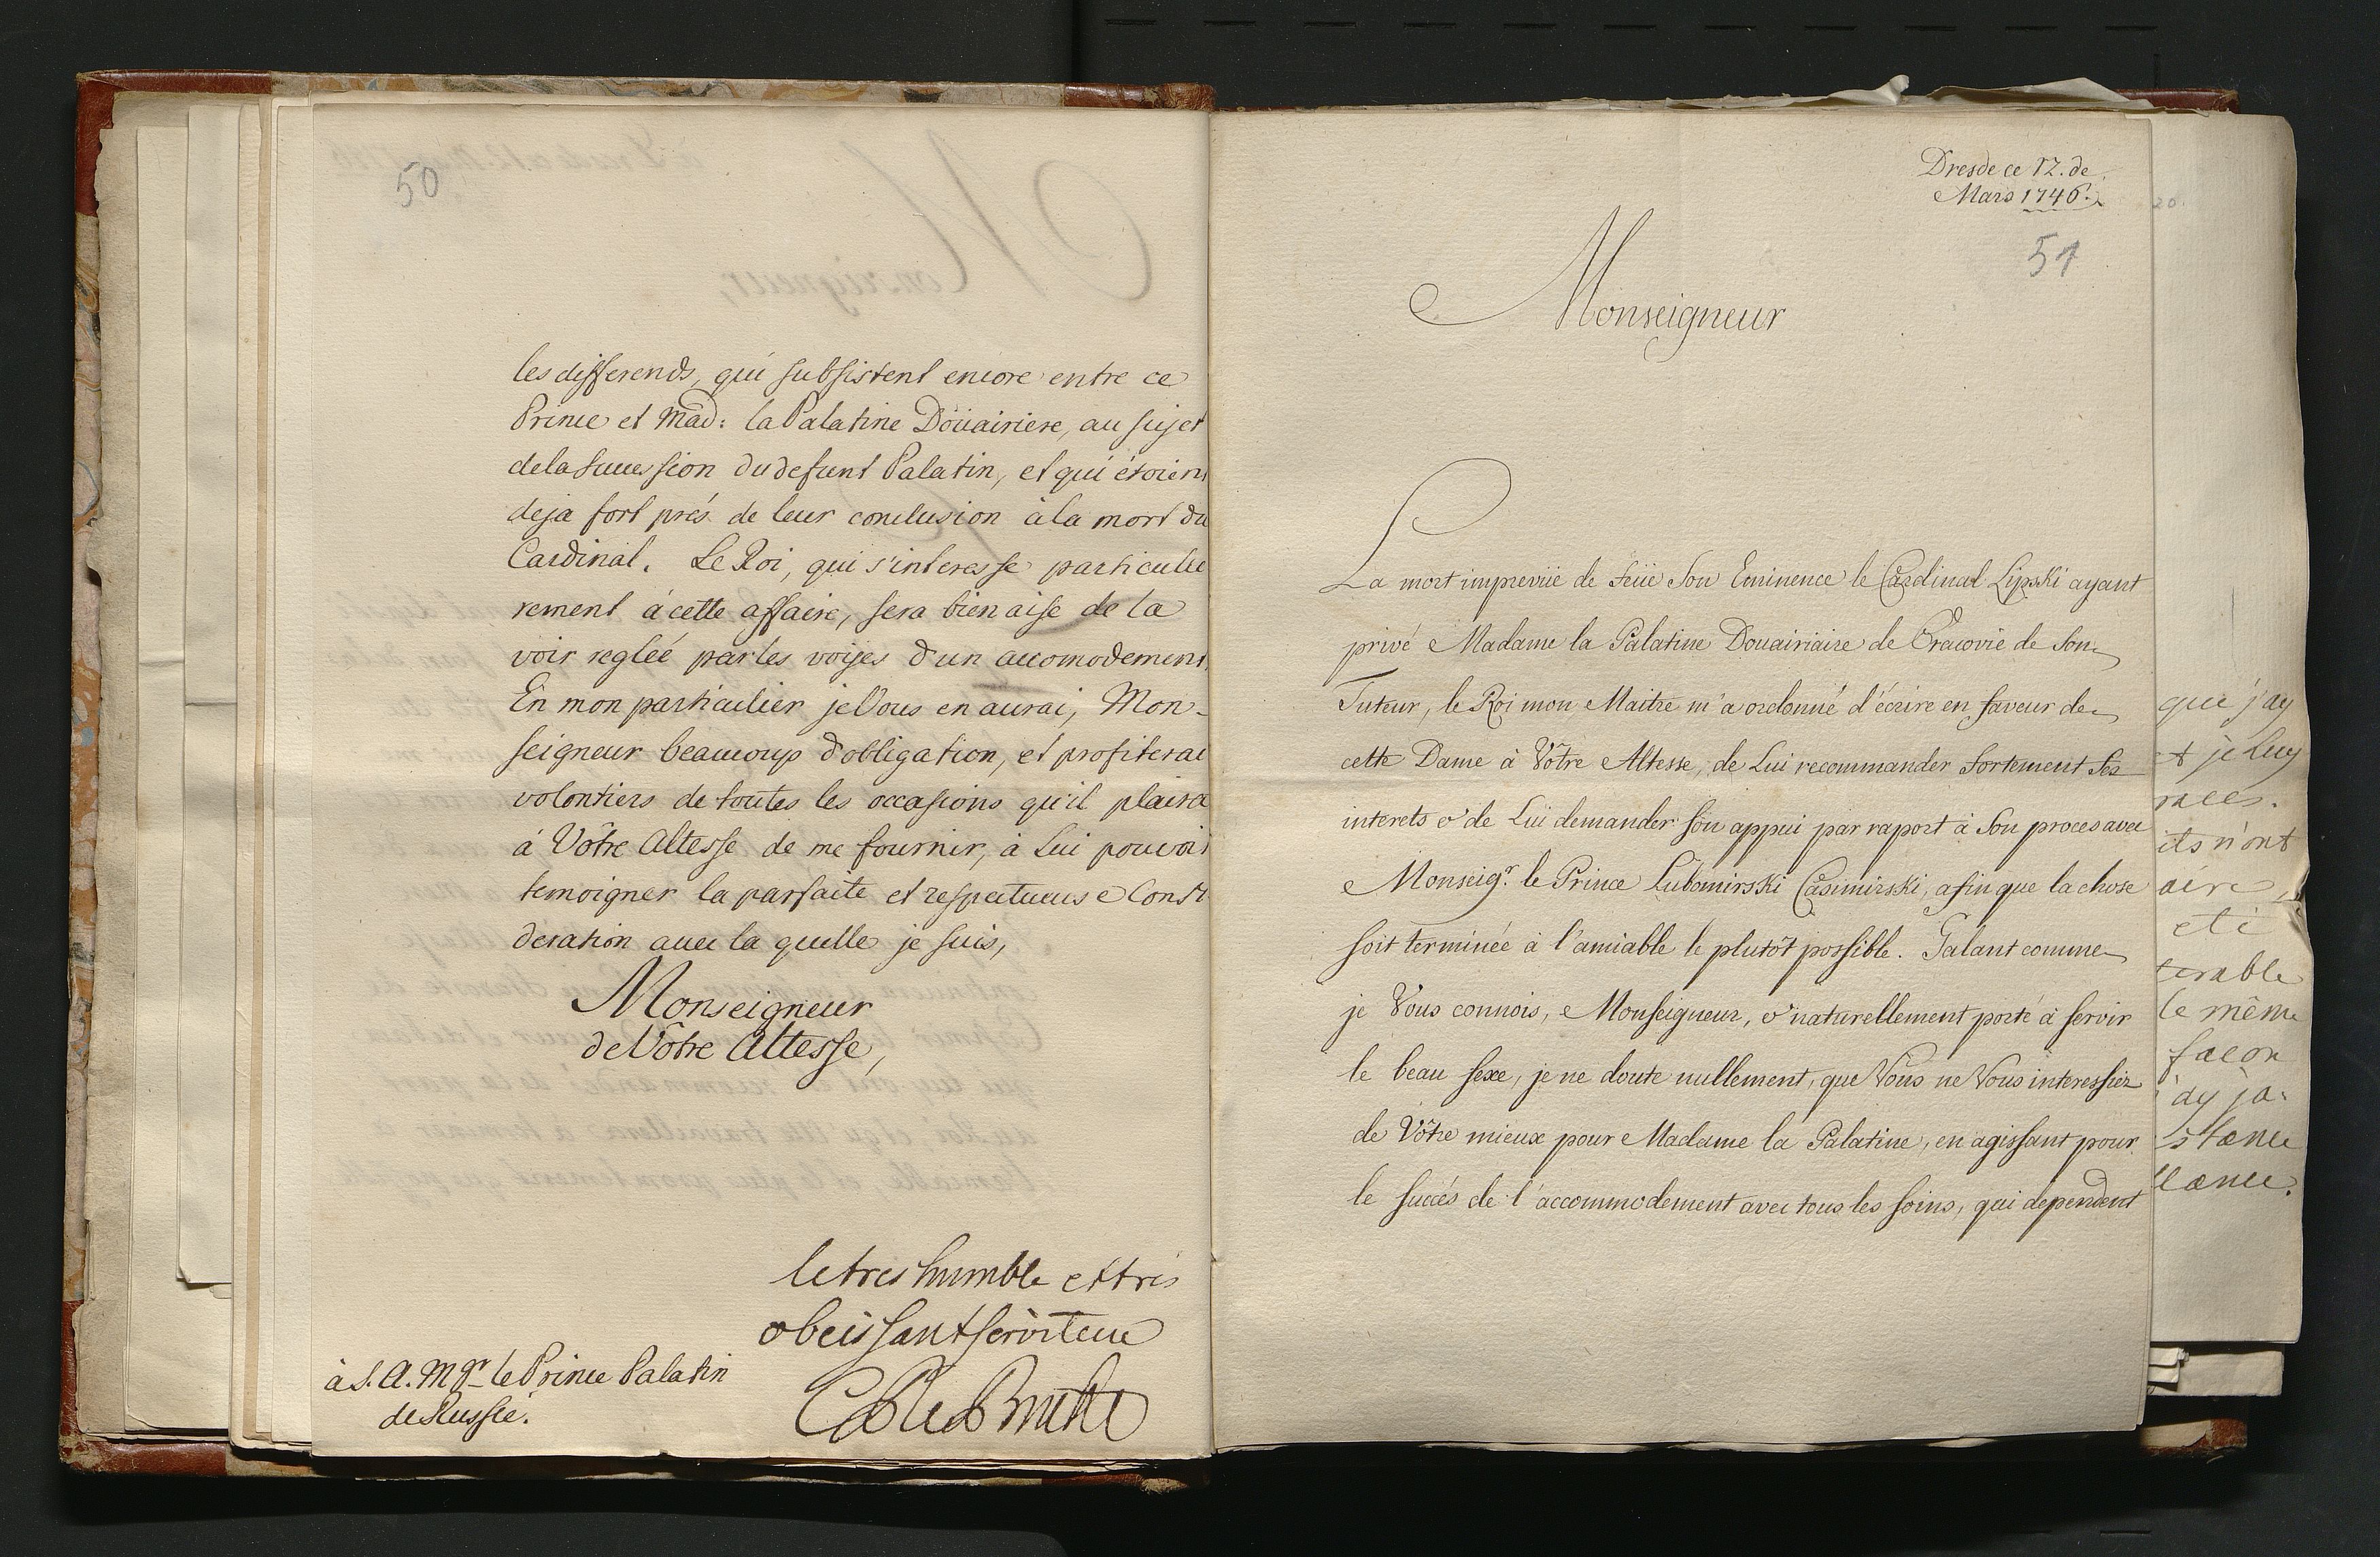 50
les differends, qui subsistent encore entre ce
Prince et Mad: la Palatine Doüairiere, au sujet
de la succession du defunt Palatin, et qui étoient
deja fort prés de leur conclusion à la mort du
Cardinal. Le Roi, qui s'interesse particulie
rement à cette affaire, sera bien aise de la
voir regleé par les voijes d'un accomodement.
En mon particulier je Vous en aurai, Mon-
seigneur beaucoup d'obligation, et profiterai
volontiers de toutes les occasions qu'il plaira
à Vôtre Altesse de me fournir, à Lui pouvoir
temoigner la parfaite et respectueuse Consi
deration avec la quelle je suis,
Monseigneur
de Vôtre Altesse,
le tres humble et tres
obeissant serviteur
C de Bruhl
à S. A. Mgr le Prince Palatin
de Russie.
Dresde ce 12. de
Mars 1746.
51
Monseigneur
La mort imprevüe de feüe Son Eminence le Cardinal Lipski ayant
privé Madame la Palatine Douairiaire de Cracovie de Son
Tuteur, le Roi mon Maitre m'a ordonné d'écrire en faveur de
cette Dame à Vôtre Altesse, de Lui recommander fortement Ses
interets & de Lui demander son appui par raport à Son proces avec
Monseigr. le Prince Lubomirski Casimirski, afin que la chose
soit terminée à l'amiable le plutôt possible. Galant comme
je Vous connois, Monseigneur, & naturellement porté à servir
le beau sexe, je ne doute nullement, que Vous ne Vous interessiez
de Vôtre mieux pour Madame la Palatine, en agissant pour
le succés de l'accommodement avec tous les soins, qui dependent
20.
que j'ay
et je Luy
races.
its n'ont
aire,
et i
terable
le même
facon
'ay ja-
stance
lance.